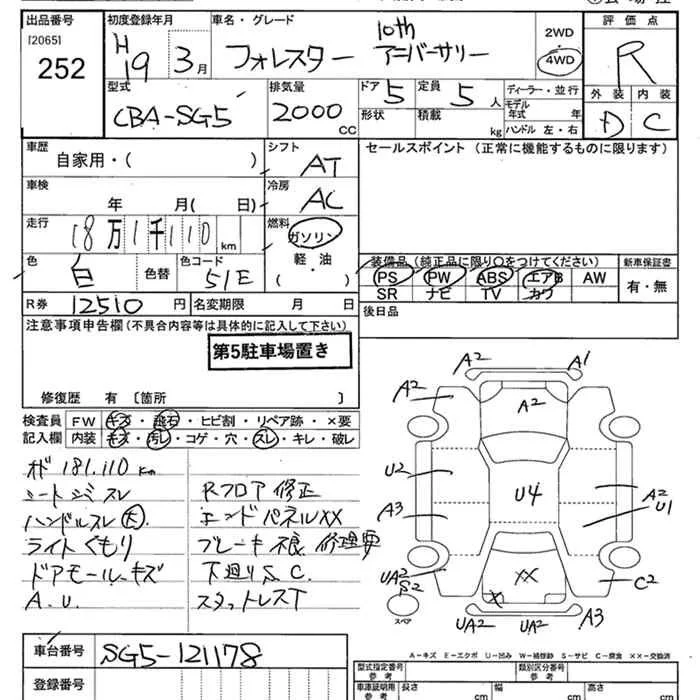 出品番号
[2065]
252
初度登録年月
H19 3月
車名・グレード
フォレスター 10th アニバーサリー
2WD
4WD
評価点
R
外装 内装
D C
型式
CBA-SG5
排気量
2000 CC
ドア 5
形状
定員 5 人
積載 kg
ディーラー・並行
モデル
年式 年
ハンドル 左・右
車歴
自家用・( )
シフト
AT
車検
年 月( 日)
冷房
AC
走行
18万1千110 km
燃料
ガソリン
軽・油
( )
色
白
色替
色コード
51E
R券
12510 円
名変期限 月 日
セールスポイント (正常に機能するものに限ります)
装備品 (純正品に限り○をつけてください)
PS PW ABS エアB AW
SR ナビ TV カワ
新車保証書
有・無
後日品
注意事項申告欄 (不具合内容等は具体的に記入して下さい)
第5駐車場置き
修復歴 有 〔箇所 〕
検査員
記入欄
FW キズ・飛石・ヒビ割・リペア跡・×要
内装 キズ・汚レ・コゲ・穴・スレ・キレ・破レ
181.110 km
ハンドルスレ 大
ライトくもり
ドアモールキズ
A.U.
Rフロア修正
エンドパネルXX
ブレーキ不良 修理要
下廻りS.C.
スタットレスT
A2 A1
A2 A2
U2 U4 A2 U1
A3
UA2 S2 XX C2
スペア
UA2 UA2 A3
A-キズ E-エクボ U-凹み W-補修跡 S-サビ C-腐食 ××-交換済
車台番号
SG5-121178
登録番号
型式指定番号
参考
類別区分番号
参考
車庫証明用
参考
長さ cm
幅 cm
高さ cm